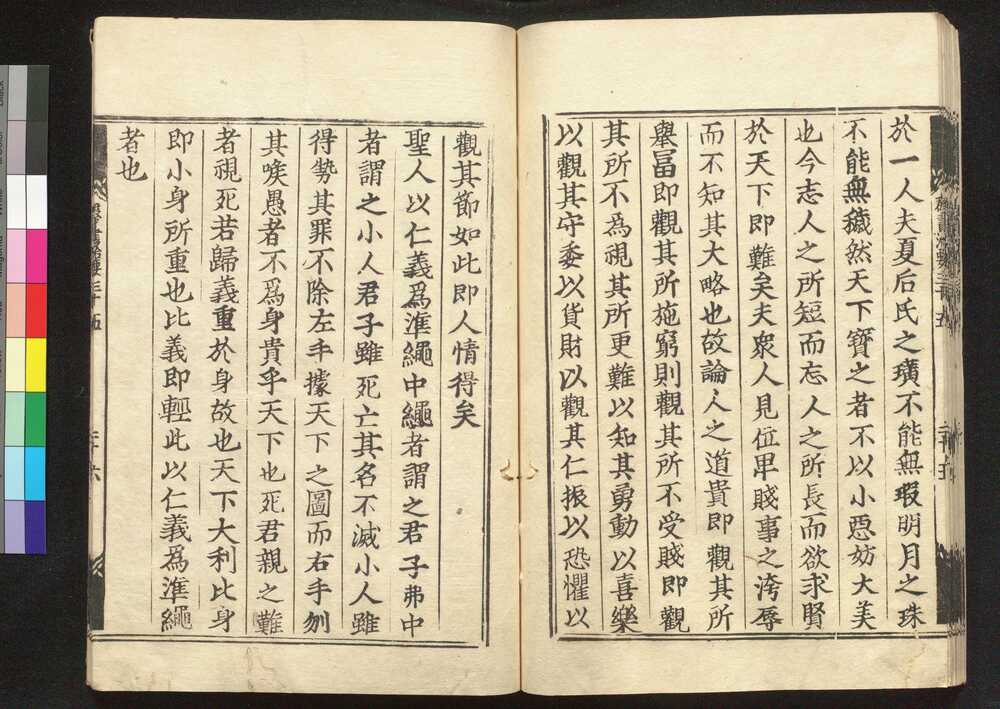 於一人夫夏后氏之璜不能無瑕明月之珠
不能無穢然天下寶之者不以小惡妨大美
也今志人之所短而忘人之所長而欲求賢
於天下即難矣夫衆人見位卑賤事之洿辱
而不知其大略也故論人之道貴即觀其所
舉冨即觀其所施窮則觀其所不受賤即觀
其所不為視其所更難以知其勇動以喜樂
以觀其守委以貨財以觀其仁振以恐懼以
觀其節如此即人情得矣
聖人以仁義爲準繩中繩者謂之君子弗中
者謂之小人君子雖死亡其名不滅小人雖
得勢其罪不除左手據天下之圖而右手刎
其喉愚者不爲身貴乎天下也死君親之難
者視死若歸義重於身故也天下大利比身
即小身所重也比義即輕此以仁義爲準繩
者也